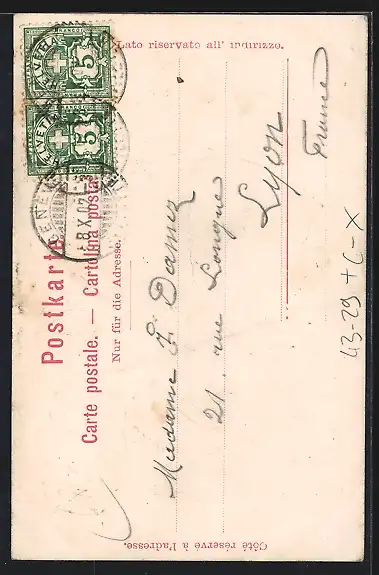 Postkarte
Carte postale. — Cartolina posta
Nur für die Adresse.
Lato riservato all' indirizzo.
Côté réservé à l'adresse.
HELVETIA
5
HELVETIA
5
8.X.02
Madame F. Damez
21 rue Longue
Lyon
France
43-29 + C-X